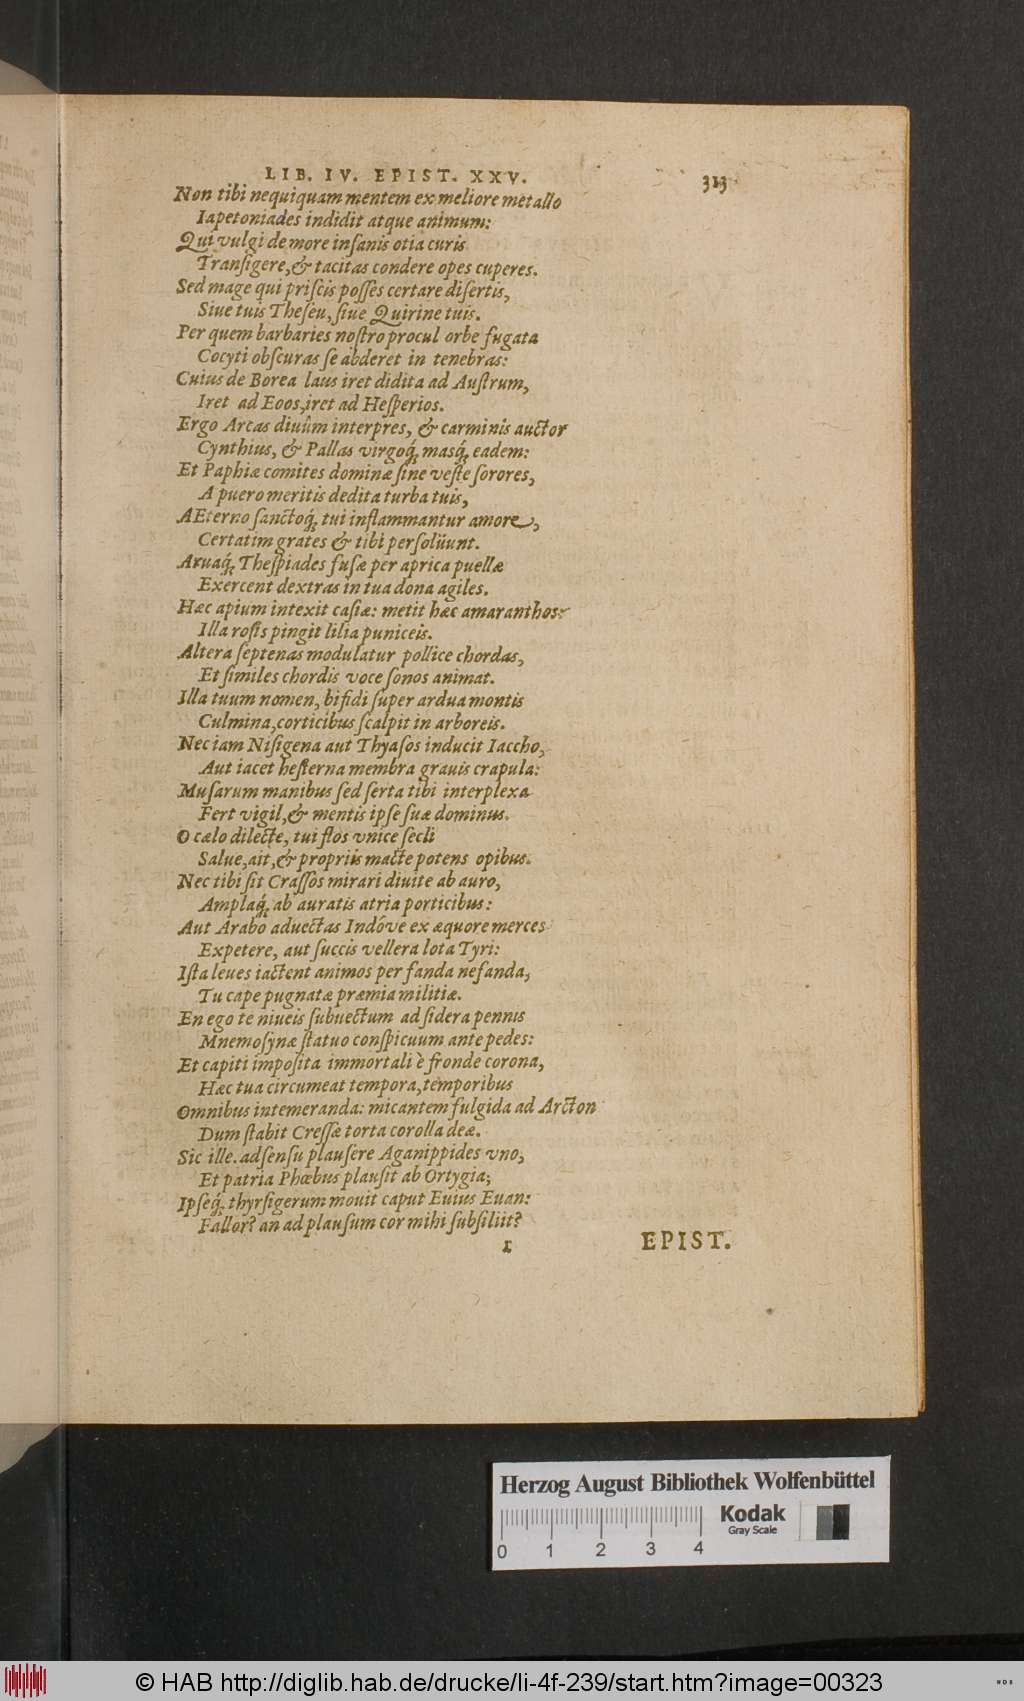 LIB. IV. EPIST. XXV. 313
Non tibi nequiquam mentem ex meliore metallo
Iapetoniades indidit atque animum:
Qui vulgi de more inſanis otia curis
Tranſigere, & tacitas condere opes cuperes.
Sed mage qui priſcis poſſes certare diſertis,
Siue tuis Theſeu, ſiue Quirine tuis.
Per quem barbaries noſtro procul orbe fugata
Cocyti obſcuras ſe abderet in tenebras:
Cuius de Borea laus iret didita ad Auſtrum,
Iret ad Eoos, iret ad Heſperios.
Ergo Arcas diuûm interpres, & carminis auctor
Cynthius, & Pallas virgoq́, masq́, eadem:
Et Paphiæ comites dominæ ſine veſte ſorores,
A puero meritis dedita turba tuis,
AEterno ſanctoq́, tui inflammantur amore,
Certatim grates & tibi perſolüunt.
Aruaq́, Theſpiades fuſæ per aprica puellæ
Exercent dextras in tua dona agiles.
Hæc apium intexit caſiæ: metit hæc amaranthos:
Illa roſis pingit lilia puniceis.
Altera ſeptenas modulatur pollice chordas,
Et ſimiles chordis voce ſonos animat.
Illa tuum nomen, bifidi ſuper ardua montis
Culmina, corticibus ſcalpit in arboreis.
Nec iam Niſigena aut Thyaſos inducit Iaccho,
Aut iacet heſterna membra grauis crapula:
Muſarum manibus ſed ſerta tibi interplexa
Fert vigil, & mentis ipſe ſuæ dominus.
O cælo dilecte, tui flos vnice ſecli
Salue, ait, & propriis macte potens opibus.
Nec tibi ſit Craſſos mirari diuite ab auro,
Amplaq́, ab auratis atria porticibus:
Aut Arabo aduectas Indóve ex æquore merces
Expetere, aut ſuccis vellera lota Tyri:
Iſta leues iactent animos per fanda nefanda,
Tu cape pugnatæ præmia militiæ.
En ego te niueis ſubuectum ad ſidera pennis
Mnemoſynæ ſtatuo conſpicuum ante pedes:
Et capiti impoſita immortali è fronde corona,
Hæc tua circumeat tempora, temporibus
Omnibus intemeranda: micantem fulgida ad Arcton
Dum ſtabit Creſſæ torta corolla deæ.
Sic ille. adſenſu plauſere Aganippides vno,
Et patria Phœbus plauſit ab Ortygia;
Ipſeq́, thyrſigerum mouit caput Euius Euan:
Fallor? an ad plauſum cor mihi ſubſiliit?
r EPIST.
Herzog August Bibliothek Wolfenbüttel
Kodak
Gray Scale
0 1 2 3 4
© HAB http://diglib.hab.de/drucke/li-4f-239/start.htm?image=00323